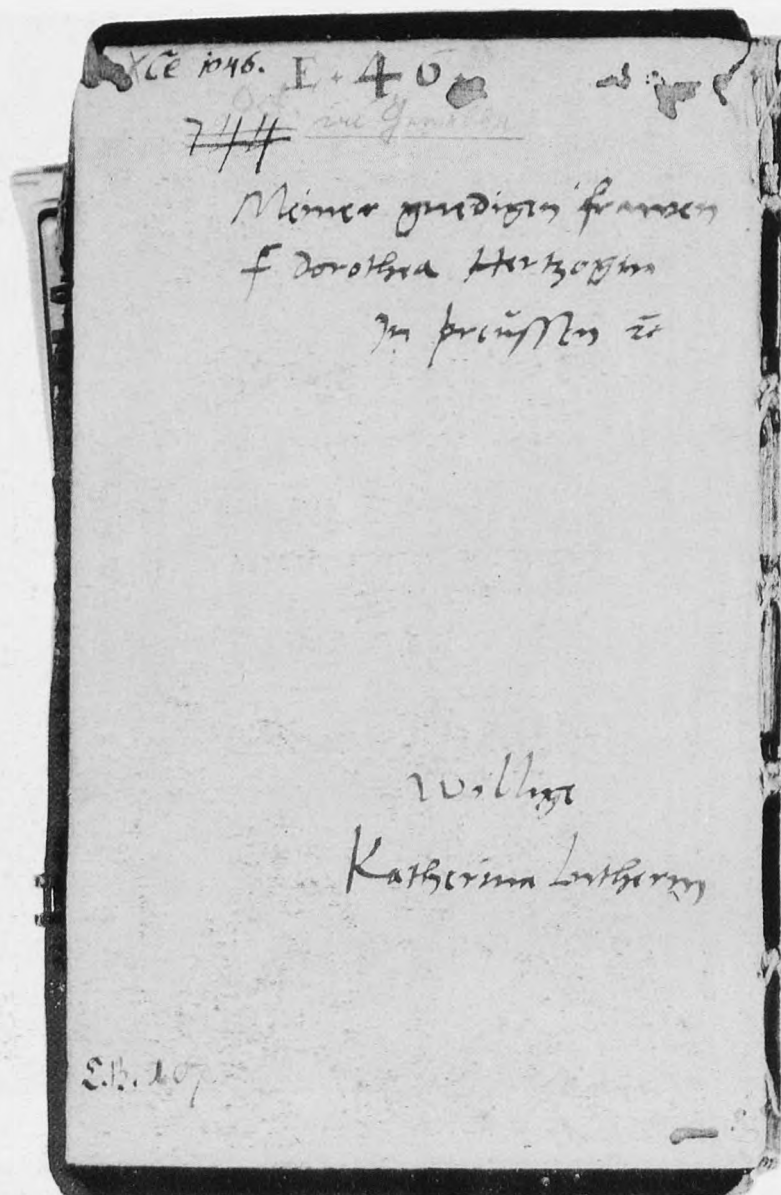 XCē 1046.
E. 46.
744
Meiner gnedigen frawen
F Dorothea Hertzogin
In preussen ꝛc
Willige
Katherina Lutherin